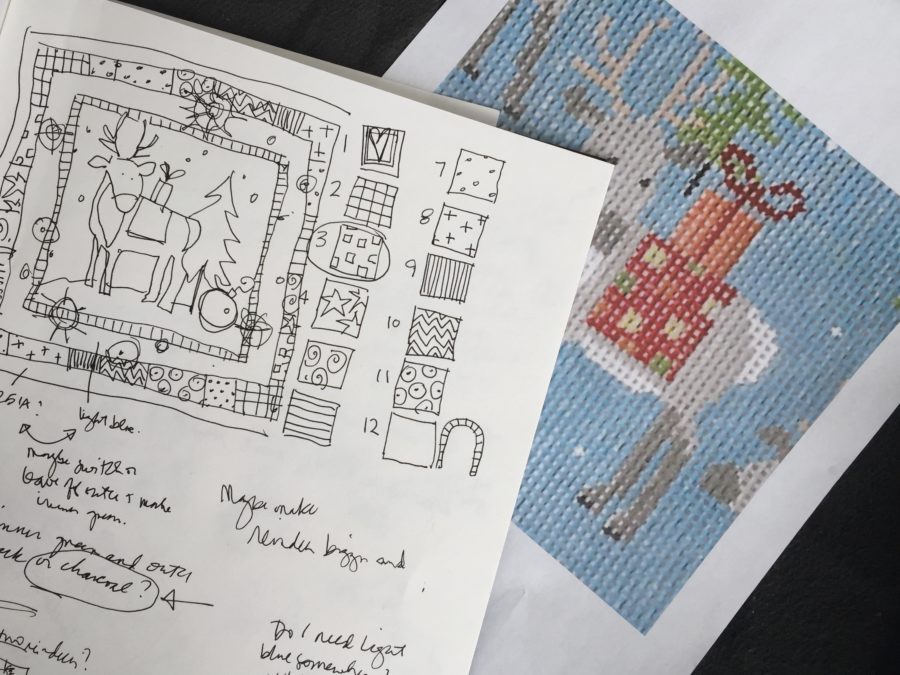 1
2
3
4
7
8
9
10
11
12
light blue.
Maybe switch or
leave outer & make
inner green.
green and outer
or charcoal?
Maybe make
reindeer bigger and
Do I need light
blue somewhere?